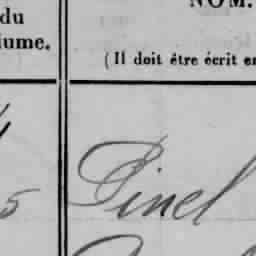 du
NOM.
lume.
(Il doit être écrit en
5
Pinel